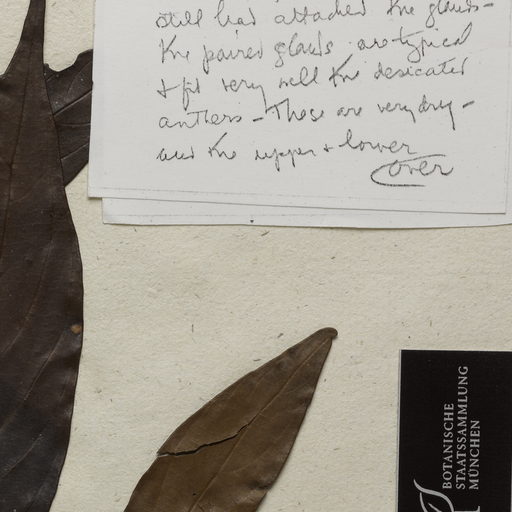 still had attached the glands -
the paired glands are typical
& fit very well the desicated
anthers - These are very dry -
and the upper & lower
over
BOTANISCHE
STAATSSAMMLUNG
MÜNCHEN